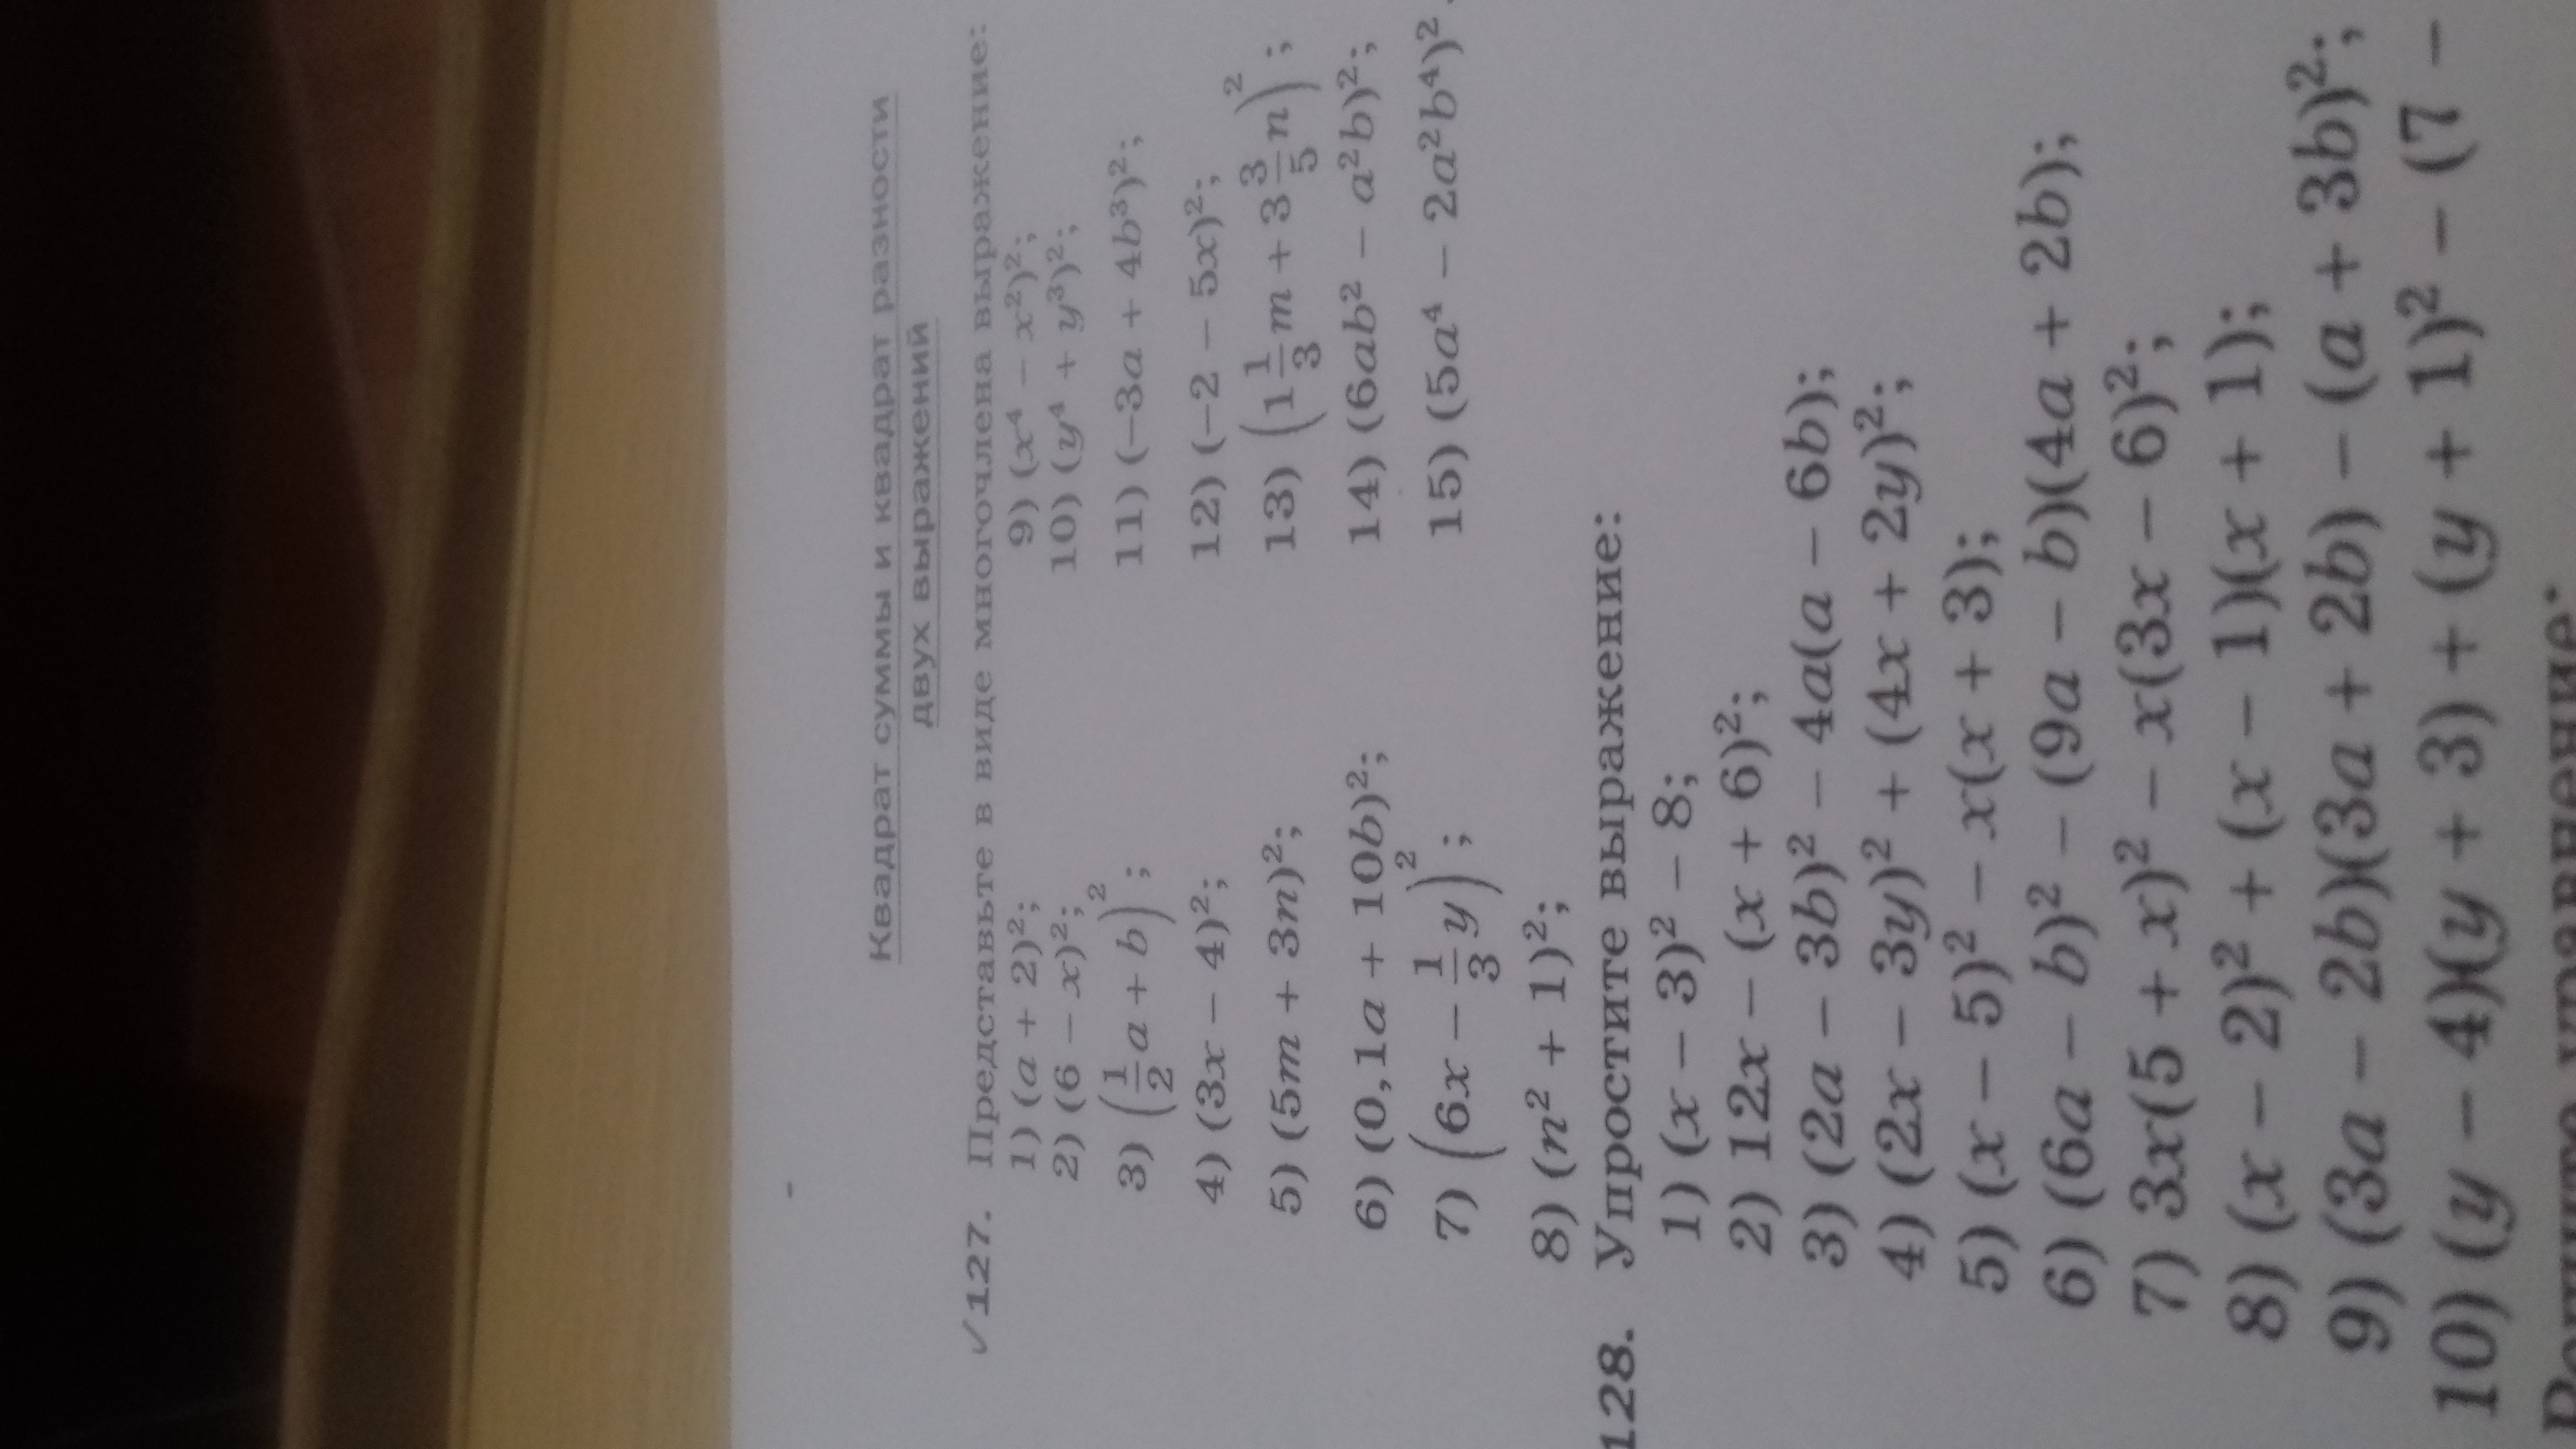 Квадрат суммы и квадрат разности
двух выражений
✓127. Представьте в виде многочлена выражение:
1) (a + 2)²; 9) (x⁴ − x²)²;
2) (6 − x)²; 10) (y⁴ + y³)²;
3) (1/2 a + b)²; 11) (−3a + 4b³)²;
4) (3x − 4)²; 12) (−2 − 5x)²;
5) (5m + 3n)²; 13) (1 1/3 m + 3 3/5 n)²;
6) (0,1a + 10b)²; 14) (6ab² − a²b)²;
7) (6x − 1/3 y)²; 15) (5a⁴ − 2a²b⁴)²
8) (n² + 1)²;
128. Упростите выражение:
1) (x − 3)² − 8;
2) 12x − (x + 6)²;
3) (2a − 3b)² − 4a(a − 6b);
4) (2x − 3y)² + (4x + 2y)²;
5) (x − 5)² − x(x + 3);
6) (6a − b)² − (9a − b)(4a + 2b);
7) 3x(5 + x)² − x(3x − 6)²;
8) (x − 2)² + (x − 1)(x + 1);
9) (3a − 2b)(3a + 2b) − (a + 3b)²;
10) (y − 4)(y + 3) + (y + 1)² − (7 −
уравнение: